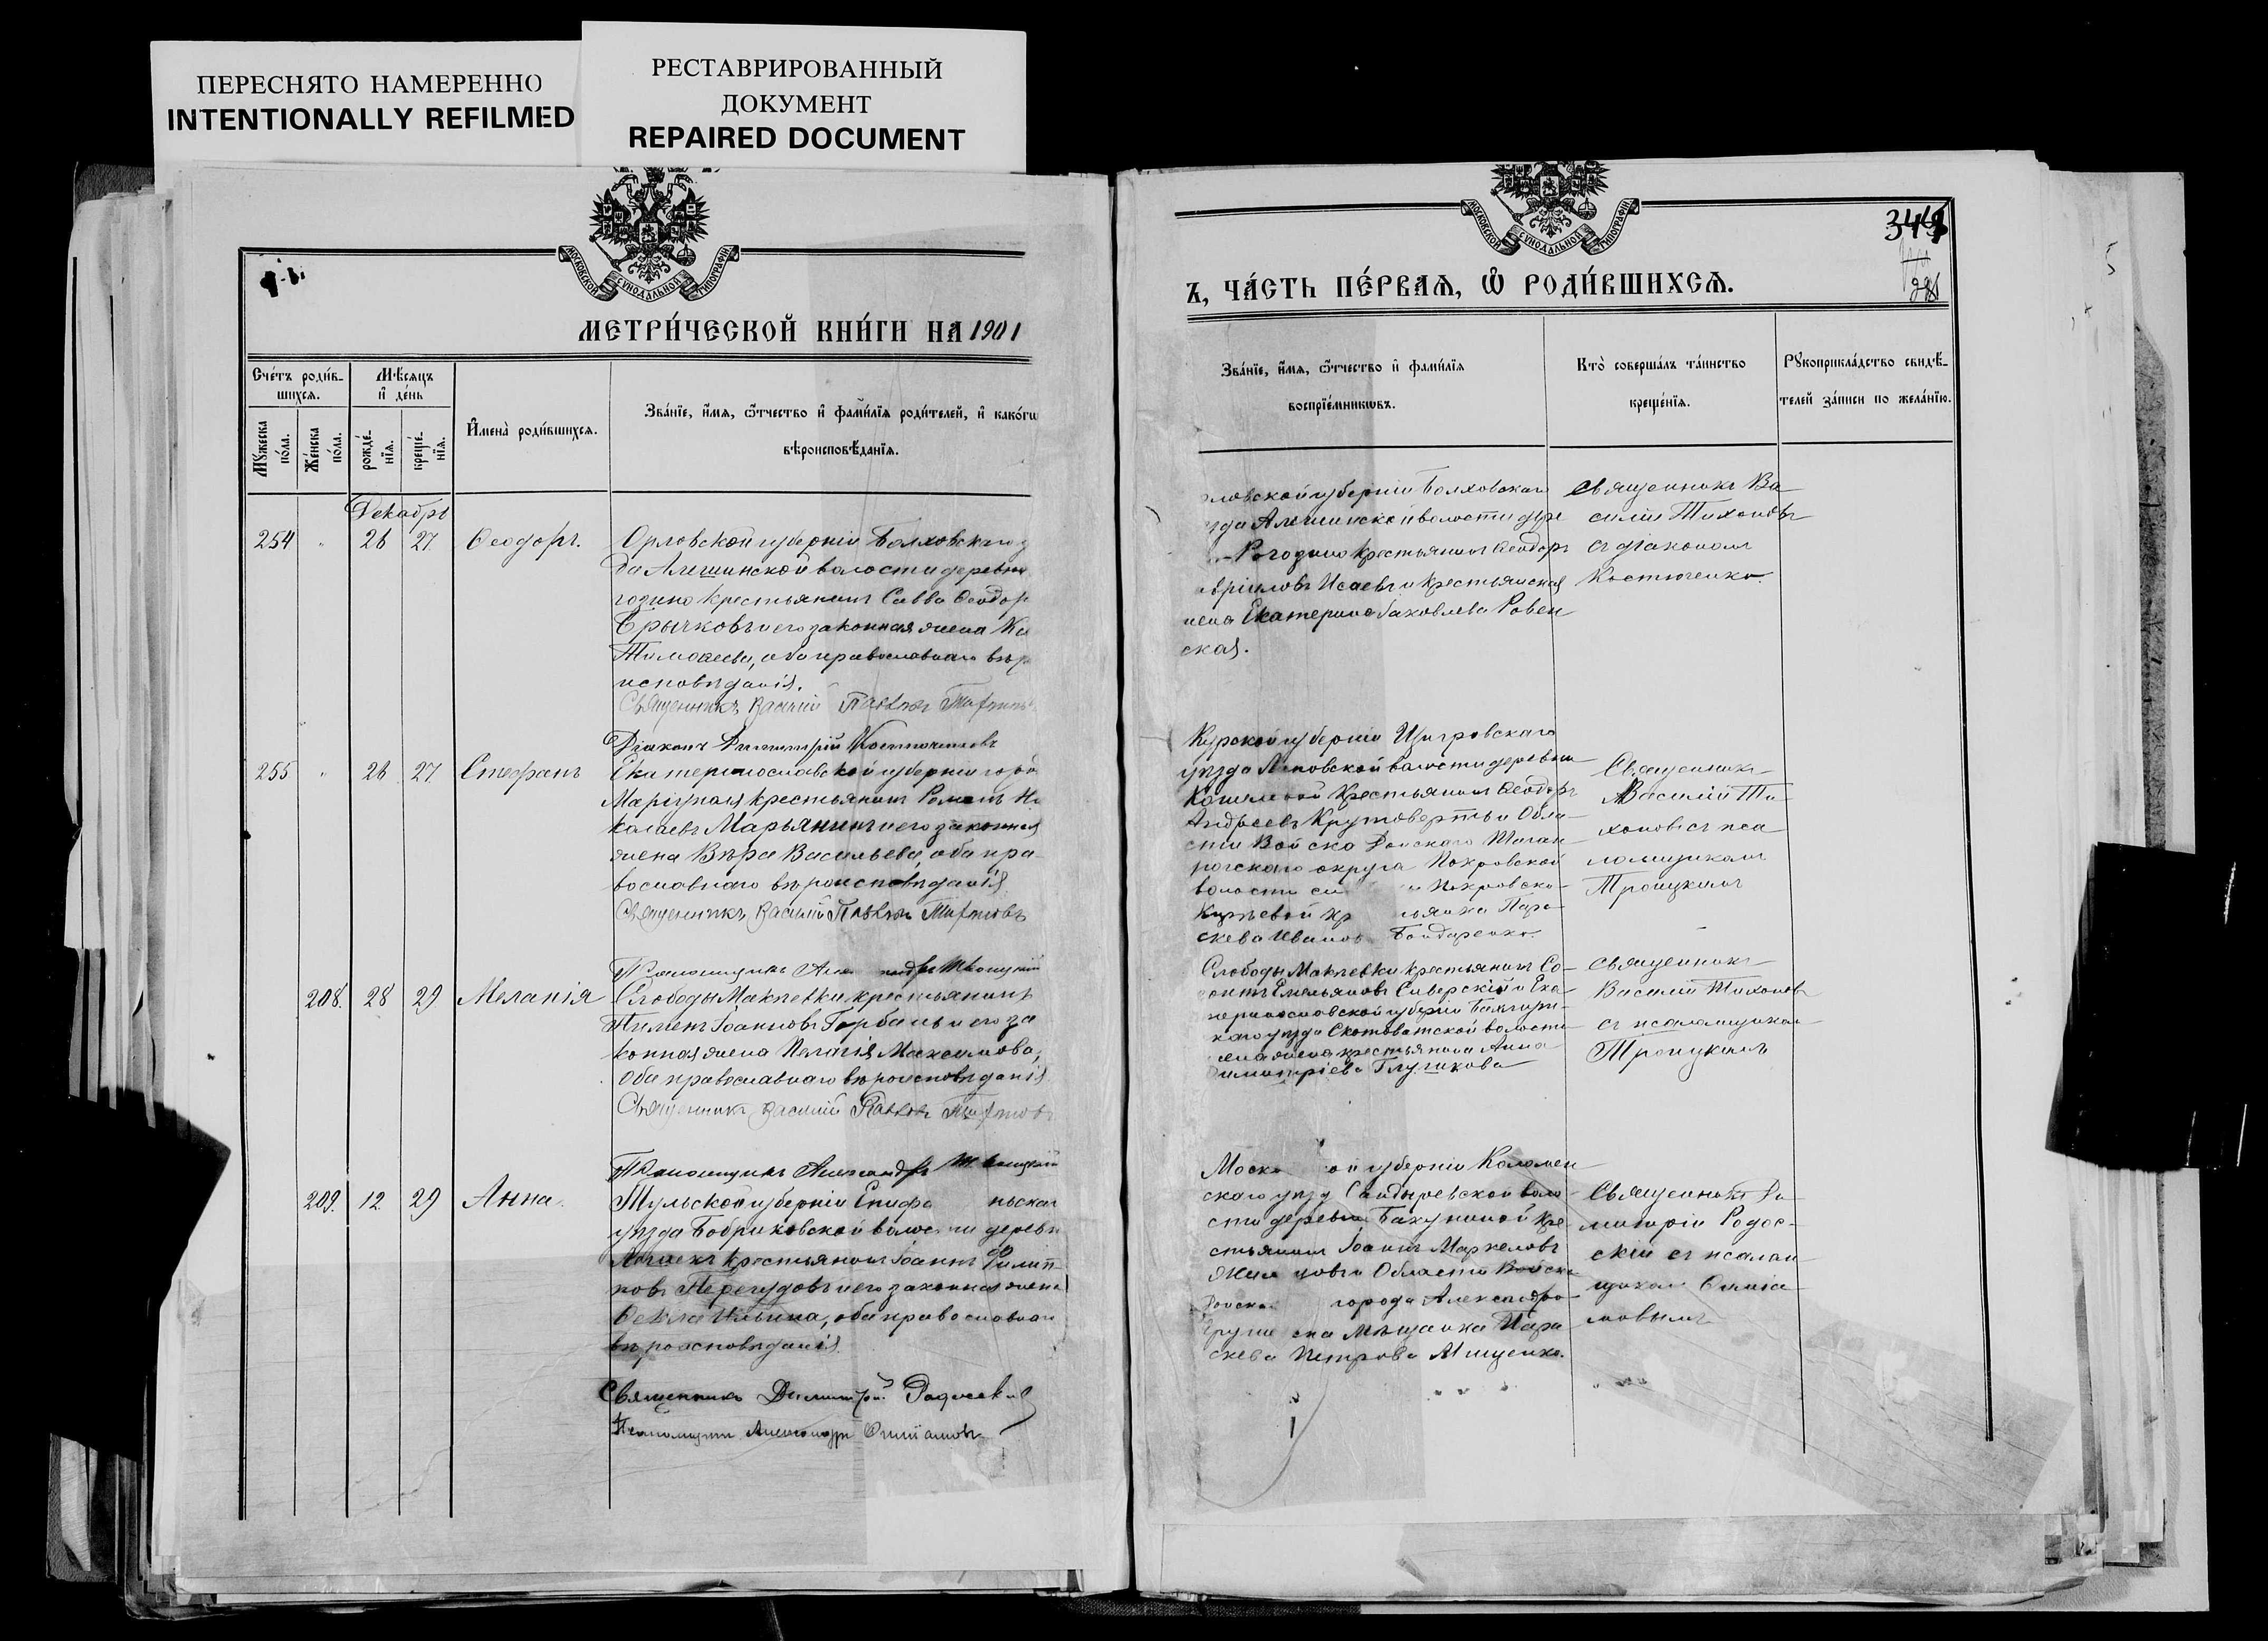 ПЕРЕСНЯТО НАМЕРЕННО
INTENTIONALLY REFILMED
РЕСТАВРИРОВАННЫЙ
ДОКУМЕНТ
REPAIRED DOCUMENT
МОСКОВСКОЙ СУНОДАЛЬНОЙ ТИПОГРАФІИ
МЕТРИ́ЧЕСКОЙ КНИ́ГИ НА 1901
Сче́тъ роди́в-
шихсѧ.
Мѣ́сѧцъ
и҆ де́нь
Мꙋ́жеска
по́ла.
Же́нска
по́ла.
рожде́-
нїѧ.
креще́-
нїѧ.
И҆мена̀ роди́вшихсѧ.
Зва́нїе, и҆́мѧ, ѻ҆́тчество и҆ фами́лїѧ роди́телей, и҆ како́гѡ
вѣроисповѣ́данїѧ.
Декабрь
254 " 26 27 Ѳеодоръ.
Орловской губерніи Болховскаго у
да Алешинской волости деревни
гозино крестьянинъ Савва Ѳеодор
Брычковъ и его законная жена
Тимоѳеева, оба православнаго вѣро
исповѣданія.
Священникъ Василій Павловъ Тихоновъ
Діаконъ Димитрій Костюченковъ
255 " 26 27 Стефанъ
Екатеринославской губерніи горо
Маріуполя крестьянинъ Романъ Ни
колаевъ Марьянинъ и его законная
жена Вѣра Васильева, оба пра-
вославнаго вѣроисповѣданія
Священникъ Василій Павловъ Тихоновъ
Псаломщикъ Але ндръ Троицкій
208. 28 29 Меланія
Слободы Макѣевки крестьянинъ
Пименъ Іоанновъ Горбань и его за
конная жена Пелагія Максимова,
оба православнаго вѣроисповѣданія
Священникъ Василій Павловъ Тихоновъ
Псаломщикъ Александръ Троицкій
209. 12 29 Анна.
Тульской губерніи Епифа ньскаго
уѣзда Бобриковской волости деревн
крестьянинъ Іоаннъ Филип-
повъ Перегудовъ и его законная жена
Ѳекла Ильина, оба православнаго
вѣроисповѣданія.
Священникъ Димитрій Родосскій
Псаломщикъ Александръ
МОСКОВСКОЙ СУНОДАЛЬНОЙ ТИПОГРАФІИ
Ъ, ЧА́СТЬ ПЕ́РВАѦ, Ѡ҆ РОДИ́ВШИХСѦ.
Зва́нїе, и҆́мѧ, ѻ҆́тчество и҆ фами́лїѧ
воспрїе́мникѡвъ.
Кто̀ соверша́лъ та́инство
креще́нїѧ.
Рꙋкоприкла́дство свидѣ́-
телей за́писи по жела́нїю.
ловской губерніи Болховскаго
зда Алешинской волости дере
Рогозино крестьянинъ Ѳеодоръ
авріиловъ Исаевъ и крестьянская
жена Екатерина Іаковлева Ровен
ская.
Священникъ Ва
силій Тихоновъ
съ діакономъ
Костюченко.
Курской губерніи Щигровскаго
уѣзда Липовской волости деревни
крестьянинъ Ѳеодоръ
Андреевъ Крутоверть и Обла-
сти Войска Донскаго Таган-
рогскаго округа Покровской
волости Покровско-
Кирѣевой кр ьянка Пара-
скева Иванов Бондаренко.
Священникъ
Василій Ти-
хоновъ съ пса
ломщикомъ
Троицкимъ
Слободы Макѣевки крестьянинъ Со-
зонтъ Емельяновъ Сиверскій и Ека-
теринославской губерніи Бахмут-
скаго уѣзда Скотоватской волости
крестьянина Анна
имитріева Глушкова
Священникъ
Василій Тихоновъ
съ псаломщикомъ
Троицкимъ
Моско ой губерніи Коломен
скаго уѣзд Сандыревской воло
сти деревни Бакуниной кре-
стьянинъ Іоаннъ Маркеловъ
и Области Войска
Донска города Александро-
Груше ска Мѣщанка Пара
скева Петрова Мищенко.
Священникъ Ди
митрій Родос-
скій съ псалом
щикомъ